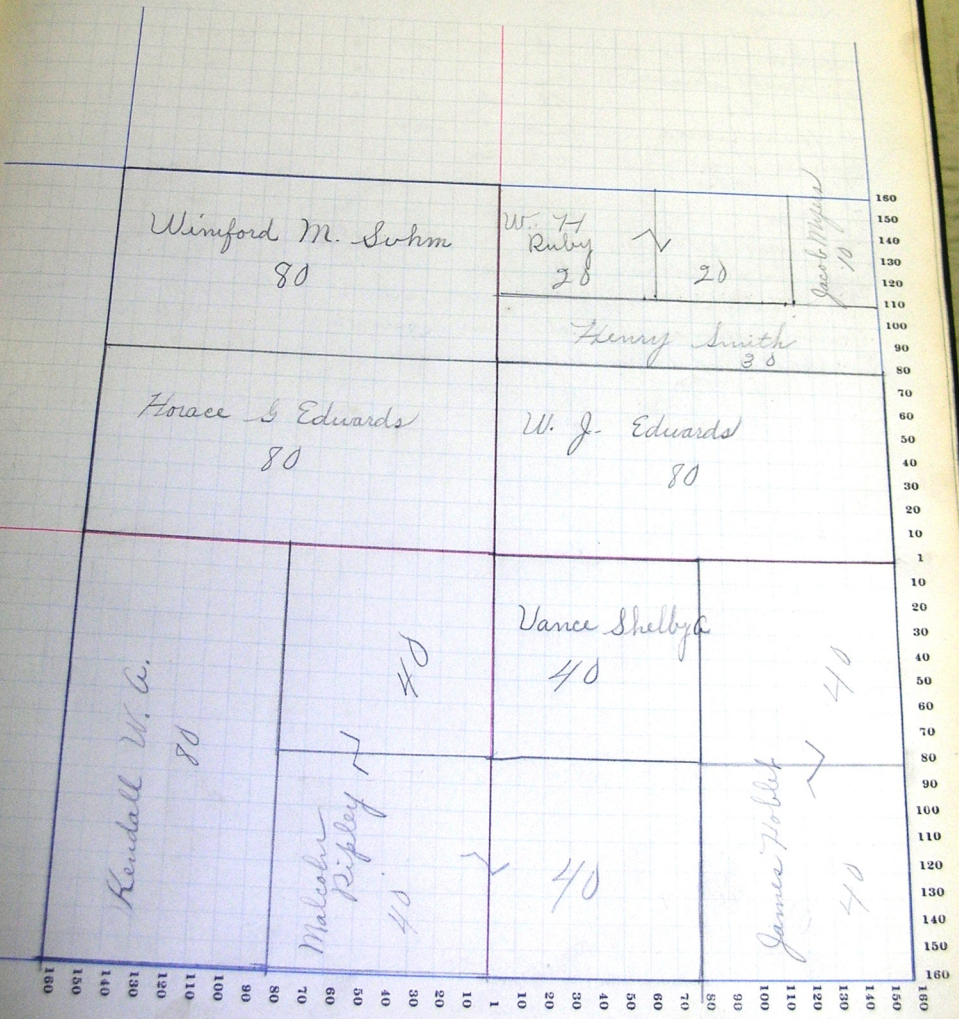 Winiford M. Suhm
80
W. H
Ruby
20
20
Jacob Myers
10
Henry Smith
30
Horace G Edwards
80
W. J. Edwards
80
Kendall W. A.
80
40
Malcolm
Ripley
40
Vance Shelby
40
40
40
James Hobbs
40
160
150
140
130
120
110
100
90
80
70
60
50
40
30
20
10
1
10
20
30
40
50
60
70
80
90
100
110
120
130
140
150
160
160 150 140 130 120 110 100 90 80 70 60 50 40 30 20 10 1 10 20 30 40 50 60 70 80 90 100 110 120 130 140 150 160